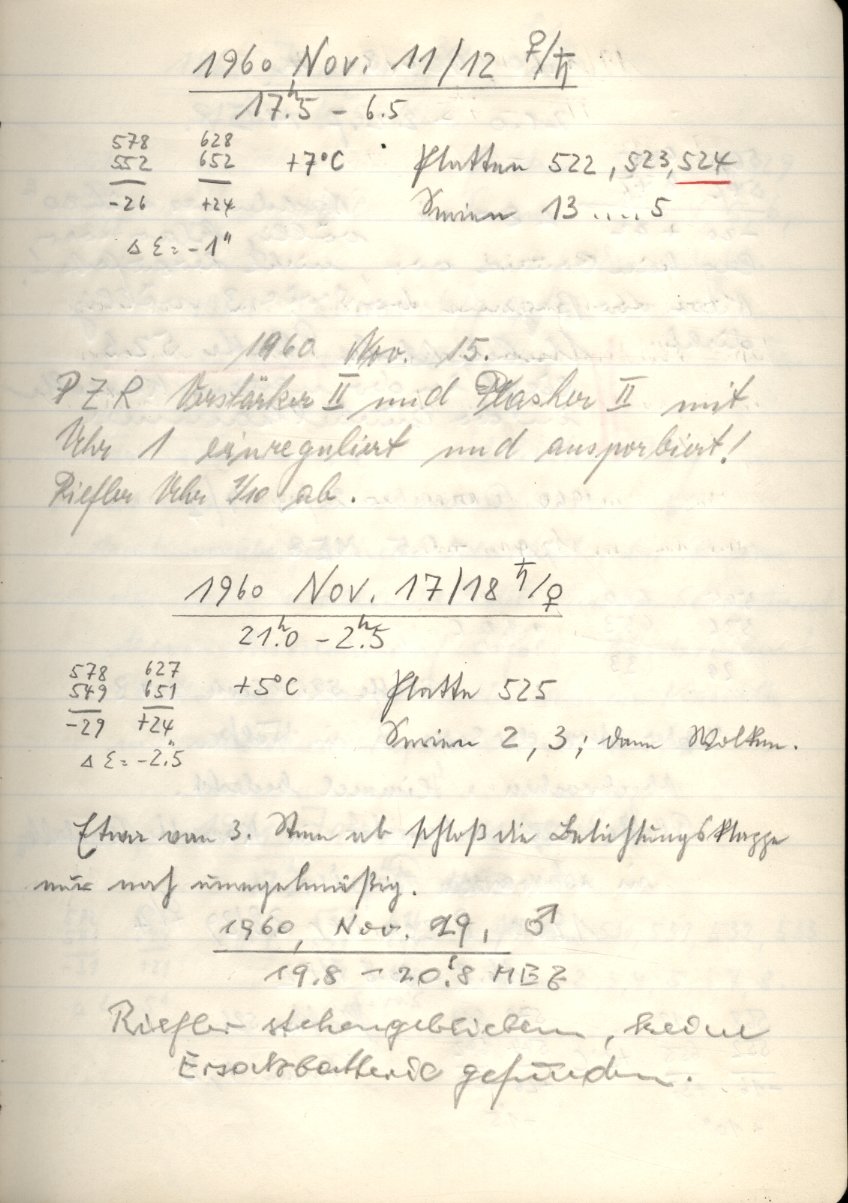 1960 Nov. 11/12 ♀/♄
17ʰ.5 – 6.5
578 628
552 652 +7°C Platten 522, 523, 524
-26 +24 Serien 13 .... 5
Δ Ɛ = -1"
1960 Nov. 15.
PZR Verstärker II und Flasher II mit
Uhr 1 einreguliert und ausporbiert!
Riefler Uhr 1/10 ab.
1960 Nov. 17/18 ♄/♀
21ʰ.0 – 2ʰ.5
578 627
549 651 +5°C Platte 525
-29 +24 Serien 2, 3; dann Wolken.
Δ Ɛ = -2".5
Etwa vom 3. Stern ab schloß die Belichtungsklappe
nur noch unregelmäßig.
1960, Nov. 29, ♂
19.8 – 20.8 MEZ
Riefler stehengeblieben, keine
Ersatzbatterie gefunden.